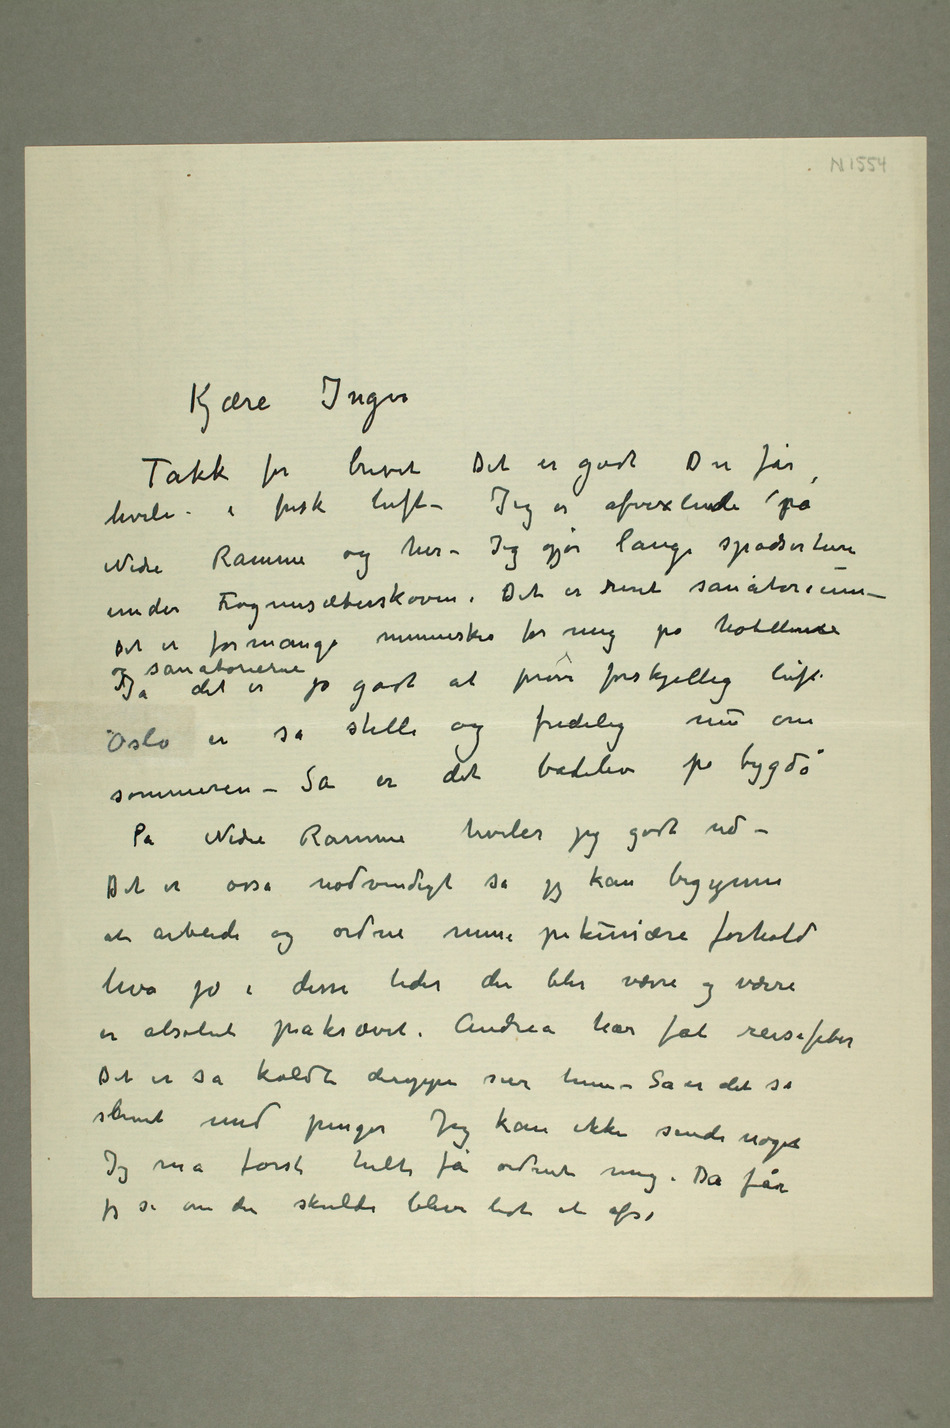 N 1554
Kjære Inger
Takk for brevet Det er godt Du får
hvile i frisk luft – Jeg er afvexlende på
Nedre Ramme og her – Jeg gjør lange spadserture
under Frognersæterskoven. Det er rent sanatorium –
Det er formange mennesker for mig på hotellerne
og sanatorierne
Ja det er jo godt at prøve forskjellig luft
Oslo er så stille og fredelig nu om
sommeren – Så er det badeliv på bygdö
På Nedre Ramme hviler jeg godt ud –
Det er osså nødvendigt så jeg kan begynne
at arbeide og ordne mine pekuniære forhold
hva jo i disse tider der blir værre og værre
er absolut påkrævet. Andrea har fåt reisefeber
Det er så koldt deroppe sier hun – Så er det så
slemt med penger Jeg kan ikke sende noget
Jeg må først helt få ordnet mig. Da får
jeg se om der skulde blive lidt at afse